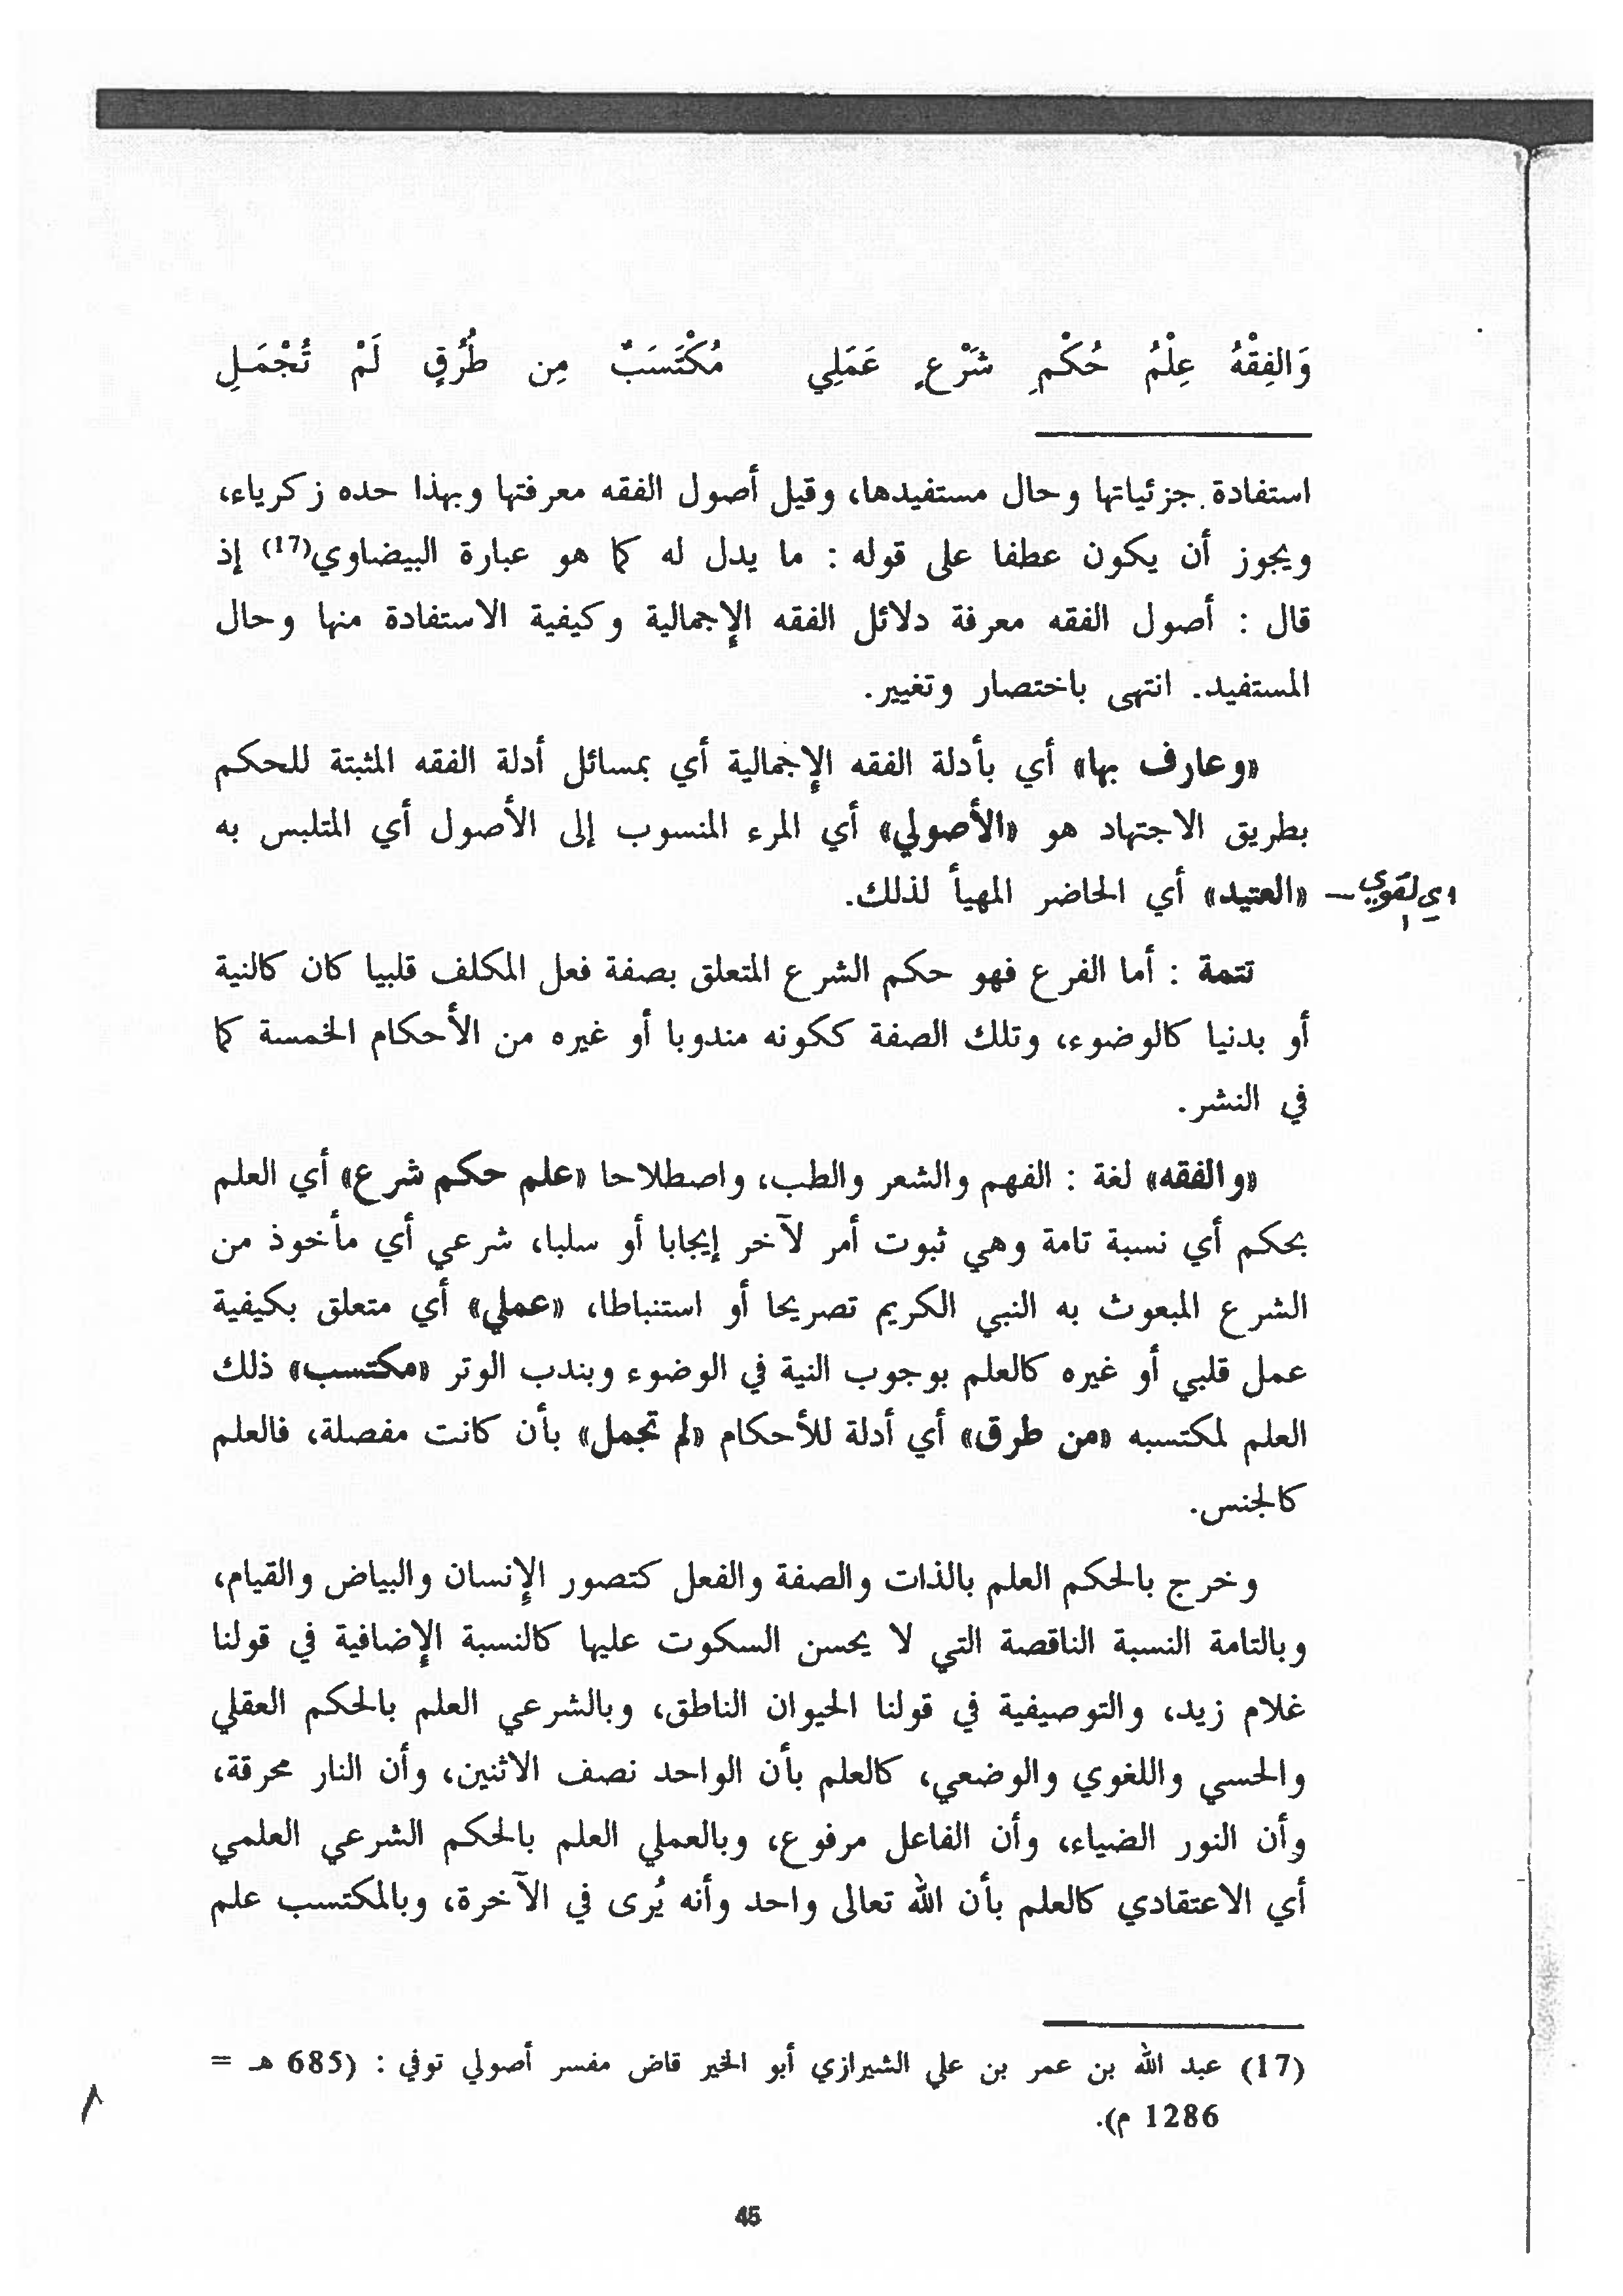 وَالفِقْهُ عِلْمُ حُكْمِ شَرْعٍ عَمَلِي مُكْتَسَبٌ مِن طُرُقٍ لَمْ تُجْمَلِ
استفادة جزئياتها وحال مستفيدها، وقيل أصول الفقه معرفتها وبهذا حده زكرياء،
ويجوز أن يكون عطفا على قوله : ما يدل له كما هو عبارة البيضاوي(17) إذ
قال : أصول الفقه معرفة دلائل الفقه الإجمالية وكيفية الاستفادة منها وحال
المستفيد. انتهى باختصار وتغيير.
«وعارف بها» أي بأدلة الفقه الإجمالية أي بمسائل أدلة الفقه المثبتة للحكم
بطريق الاجتهاد هو «الأصولي» أي المرء المنسوب إلى الأصول أي المتلبس به
«العتيد» أي الحاضر المهيأ لذلك.
تتمة : أما الفرع فهو حكم الشرع المتعلق بصفة فعل المكلف قلبيا كان كالنية
أو بدنيا كالوضوء، وتلك الصفة ككونه مندوبا أو غيره من الأحكام الخمسة كما
في النشر.
«والفقه» لغة : الفهم والشعر والطب، واصطلاحا «علم حكم شرع» أي العلم
بحكم أي نسبة تامة وهي ثبوت أمر لآخر إيجابا أو سلبا، شرعي أي مأخوذ من
الشرع المبعوث به النبي الكريم تصريحا أو استنباطا، «عملي» أي متعلق بكيفية
عمل قلبي أو غيره كالعلم بوجوب النية في الوضوء وبندب الوتر «مكتسب» ذلك
العلم لمكتسبه «من طرق» أي أدلة للأحكام «لم تجمل» بأن كانت مفصلة، فالعلم
كالجنس.
وخرج بالحكم العلم بالذات والصفة والفعل كتصور الإنسان والبياض والقيام،
وبالتامة النسبة الناقصة التي لا يحسن السكوت عليها كالنسبة الإضافية في قولنا
غلام زيد، والتوصيفية في قولنا الحيوان الناطق، وبالشرعي العلم بالحكم العقلي
والحسي واللغوي والوضعي، كالعلم بأن الواحد نصف الاثنين، وأن النار محرقة،
وأن النور الضياء، وأن الفاعل مرفوع، وبالعملي العلم بالحكم الشرعي العلمي
أي الاعتقادي كالعلم بأن الله تعالى واحد وأنه يُرى في الآخرة، وبالمكتسب علم
(17) عبد الله بن عمر بن علي الشيرازي أبو الخير قاض مفسر أصولي توفي : (685 هـ =
1286 م).
45